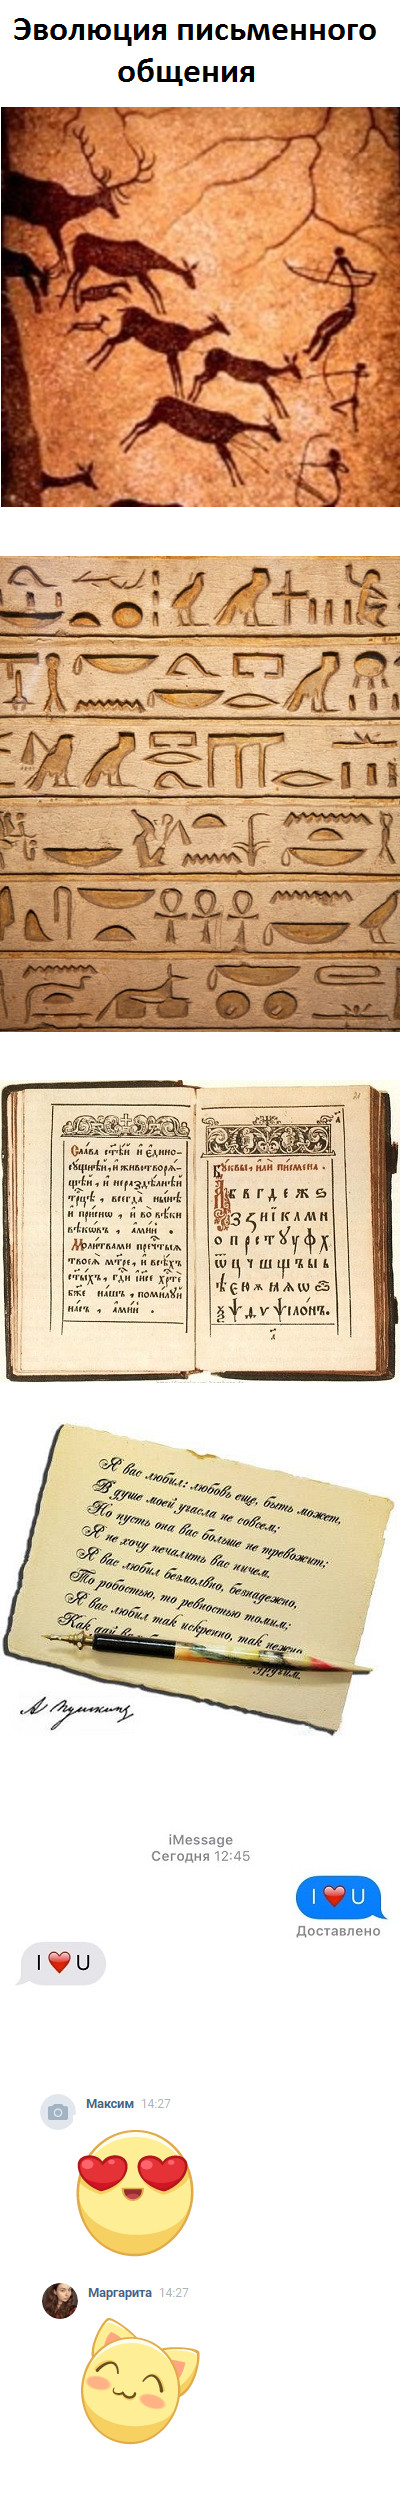 Эволюция письменного
общения
Слава ст҃ѣй и є҆дино-
сꙋщнѣй, и҆ животворѧ-
щѣй, и҆ нераздѣлнѣй
трⷪ҇цѣ, всегда ны́нѣ
и҆ при́снѡ, и҆ во вѣ́ки
вѣкѡ́въ, а҆ми́нь.
Моли́твами пречⷭ҇тыѧ
твоеѧ̀ мт҃ре, и҆ всѣ́хъ
ст҃ы́хъ, гдⷭ҇и і҆и҃се хрⷭ҇тѐ
бж҃е на́шъ, поми́лꙋй
на́съ, а҆ми́нь.
21
Бꙋквы, и҆лѝ писмена.
А Б В Г Д Е Ж Ѕ
З И І К Л М Н
О П Р С Т Ꙋ Ф Х
Ѿ Ц Ч Ш Щ Ъ Ы Ь
Я вас любил: любовь еще, быть может,
В душе моей угасла не совсем;
Но пусть она вас больше не тревожит;
Я не хочу печалить вас ничем.
Я вас любил безмолвно, безнадежно,
То робостью, то ревностью томим;
Я вас любил так искренно, так нежно,
Как дай вам
другим.
А Пушкинъ
iMessage
Сегодня 12:45
I ❤️ U
Доставлено
I ❤️ U
Максим 14:27
Маргарита 14:27